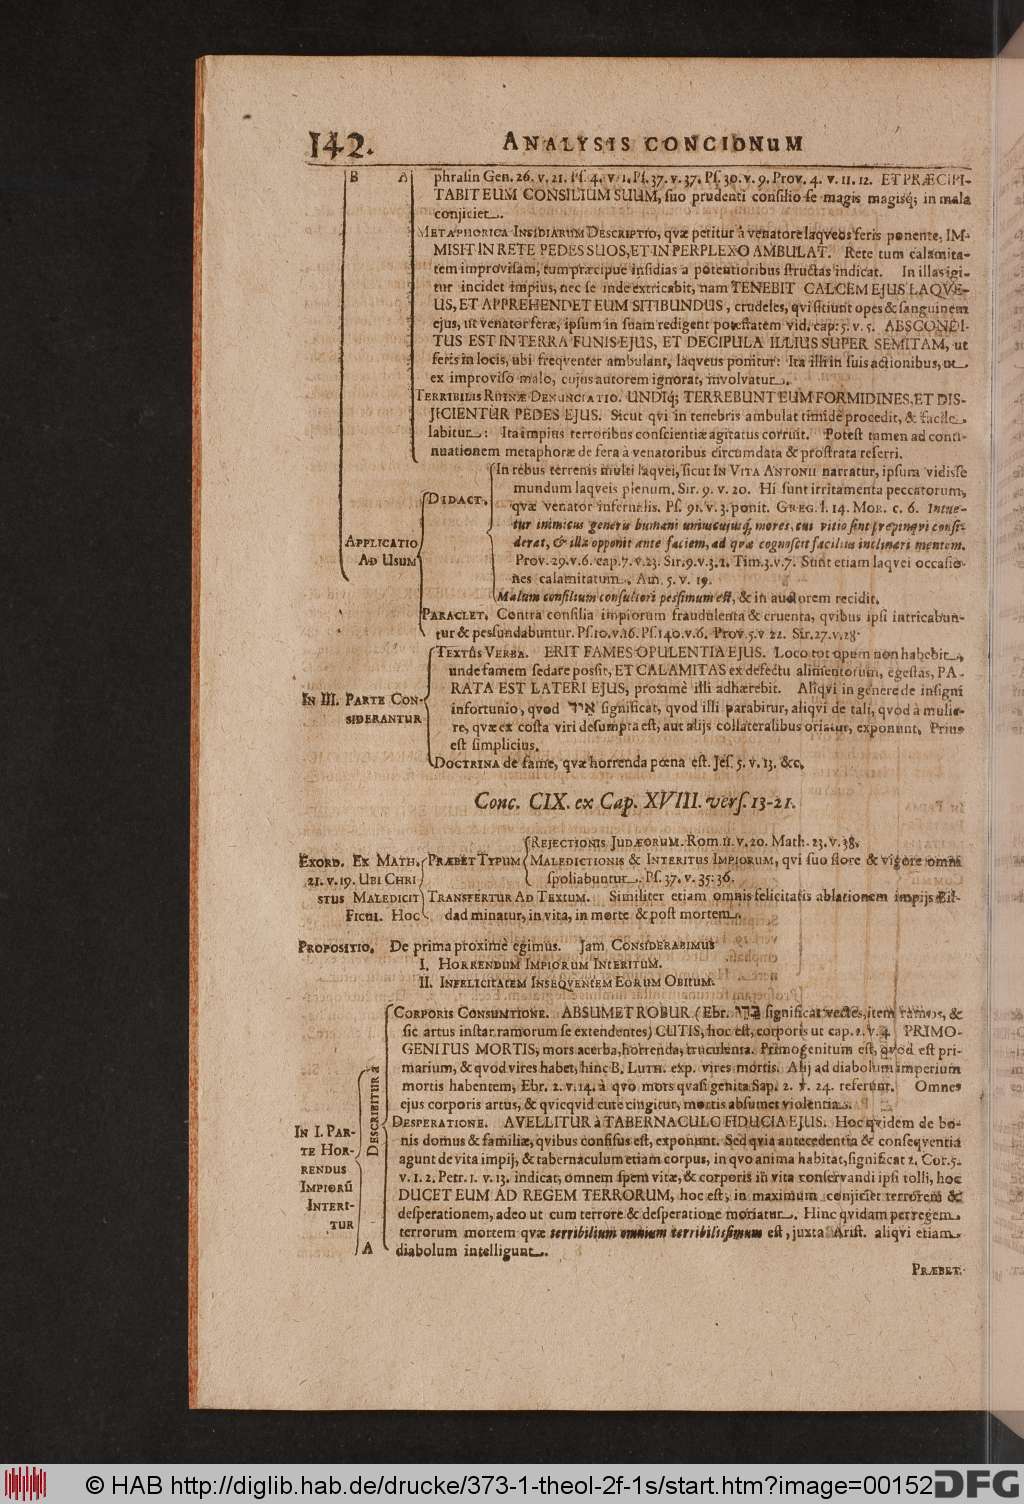 142. ANALYSIS CONCIONUM
B A phrasin Gen. 26. v. 21. Ps. 4. v. 1. Ps. 37. v. 37. Ps. 30. v. 9. Prov. 4. v. 11. 12. ET PRÆCIPI-
TABIT EUM CONSILIUM SUUM, suo prudenti consilio se magis magisq; in mala
conjiciet.
METAPHORICA INSIDIARUM DESCRIPTIO, qvæ petitur à venatore laqveos feris ponente, IM-
MISIT IN RETE PEDES SUOS, ET IN PERPLEXO AMBULAT. Rete tum calamita-
tem improvisam, tum præcipuè insidias a potentioribus structas indicat. In illas igi-
tur incidet impius, nec se inde extricabit, nam TENEBIT CALCEM EJUS LAQVE-
US, ET APPREHENDET EUM SITIBUNDUS, crudeles, qvi sitiunt opes & sangvinem
ejus, ut venator feræ, ipsum in suam redigent potestatem vid. cap. 5. v. 5. ABSCONDI-
TUS EST IN TERRA FUNIS EJUS, ET DECIPULA ILLIUS SUPER SEMITAM, ut
feris in locis, ubi freqventer ambulant, laqveus ponitur: Ita illi in suis actionibus, ut
ex improviso malo, cujus autorem ignorat, involvatur.
TERRIBILIS RUINÆ DENUNCIATIO. UNDIq; TERREBUNT EUM FORMIDINES, ET DIS-
JICIENTUR PEDES EJUS. Sicut qvi in tenebris ambulat timidè procedit, & facile
labitur: Ita impius terroribus conscientiæ agitatus corruit. Potest tamen ad conti-
nuationem metaphoræ de fera à venatoribus circumdata & prostrata referri.
APPLICATIO AD USUM
DIDACT. In rebus terrenis multi laqvei, sicut IN VITA ANTONII narratur, ipsum vidisse
mundum laqveis plenum. Sir. 9. v. 20. Hi sunt irritamenta peccatorum,
qvæ venator infernalis. Ps. 91. v. 3. ponit. GREG. l. 14. MOR. c. 6. Intue-
tur inimicus generis humani uniuscujusq; mores, cui vitio sint propinqvi consi-
derat, & illa opponit ante faciem, ad qvæ cognoscit facilius inclinari mentem.
Prov. 29. v. 6. cap. 7. v. 23. Sir. 9. v. 3. 1. Tim. 3. v. 7. Sunt etiam laqvei occasio-
nes calamitatum. Am. 5. v. 19.
Malum consilium consultori pessimum est, & in auctorem recidit.
PARACLET. Contra consilia impiorum fraudulenta & cruenta, qvibus ipsi intricabun-
tur & pessundabuntur. Ps. 10. v. 16. Ps. 140. v. 6. Prov. 5. v. 22. Sir. 27. v. 28.
IN III. PARTE CON-
SIDERANTUR
TEXTûS VERBA. ERIT FAMES OPULENTIA EJUS. Loco tot opum non habebit,
unde famem sedare possit, ET CALAMITAS ex defectu alimentorum, egestas, PA-
RATA EST LATERI EJUS, proximè illi adhærebit. Aliqvi in genere de insigni
infortunio, qvod איד significat, qvod illi parabitur, aliqvi de tali, qvod à mulie-
re, qvæ ex costa viri desumpta est, aut alijs collateralibus oriatur, exponunt. Prius
est simplicius.
DOCTRINA de fame, qvæ horrenda pœna est. Jes. 5. v. 13. &c.
Conc. CIX. ex Cap. XVIII. vers. 13-21.
EXORD. EX MATH.
21. v. 19. UBI CHRI-
STUS MALEDICIT
FICUI. HOC
PRÆBET TYPUM
REJECTIONIS JUDÆORUM. Rom. 11. v. 20. Math. 23. v. 38.
MALEDICTIONIS & INTERITUS IMPIORUM, qvi suo flore & vigore omni
spoliabuntur. Ps. 37. v. 35. 36.
TRANSFERTUR AD TEXTUM. Similiter etiam omnis felicitatis ablationem impijs Bil-
dad minatur, in vita, in morte & post mortem.
PROPOSITIO. De prima proximè egimus. Jam CONSIDERABIMUS
I. HORRENDUM IMPIORUM INTERITUM.
II. INFELICITATEM INSEQVENTEM EORUM OBITUM.
IN I. PAR-
TE HOR-
RENDUS
IMPIORŪ
INTERI-
TUR
DESCRIBITUR à
A
CORPORIS CONSUMTIONE. ABSUMET ROBUR (Ebr. בדי significat vectes, item ramos, &
sic artus instar ramorum se extendentes) CUTIS, hoc est, corporis ut cap. 2. v. 4. PRIMO-
GENITUS MORTIS, mors acerba, horrenda, truculenta. Primogenitum est, qvod est pri-
marium, & qvod vires habet, hinc B. LUTH. exp. vires mortis. Alij ad diabolum imperium
mortis habentem, Ebr. 2. v. 14. à qvo mors qvasi genita Sap. 2. v. 24. referunt. Omnes
ejus corporis artus, & qvicqvid cute cingitur, mortis absumet violentia.
DESPERATIONE. AVELLITUR à TABERNACULO FIDUCIA EJUS. Hoc qvidem de bo-
nis domus & familiæ, qvibus confisus est, exponunt. Sed qvia antecedentia & conseqventia
agunt de vita impij, & tabernaculum etiam corpus, in qvo anima habitat, significat 2. Cor. 5.
v. 1. 2. Petr. 1. v. 13. indicat, omnem spem vitæ, & corporis in vita conservandi ipsi tolli, hoc
DUCET EUM AD REGEM TERRORUM, hoc est, in maximum conjiciet terrorem &
desperationem, adeo ut cum terrore & desperatione moriatur. Hinc qvidam per regem
terrorum mortem qvæ terribilium omnium terribilissimum est, juxta Arist. aliqvi etiam
diabolum intelligunt.
PRÆBET.
© HAB http://diglib.hab.de/drucke/373-1-theol-2f-1s/start.htm?image=00152
DFG